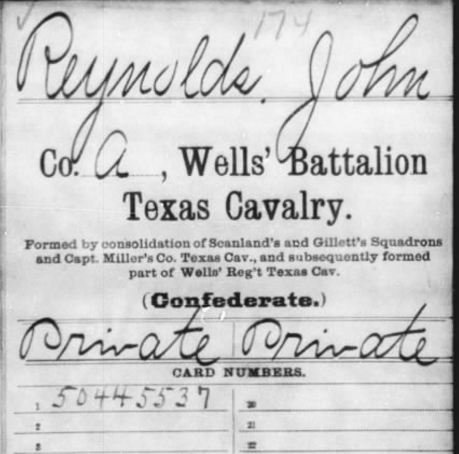 174
Reynolds, John
Co. A, Wells' Battalion
Texas Cavalry.
Formed by consolidation of Scanland's and Gillett's Squadrons
and Capt. Miller's Co. Texas Cav., and subsequently formed
part of Wells' Reg't Texas Cav.
(Confederate.)
Private Private
CARD NUMBERS.
1 50445537 20
2 21
3 22